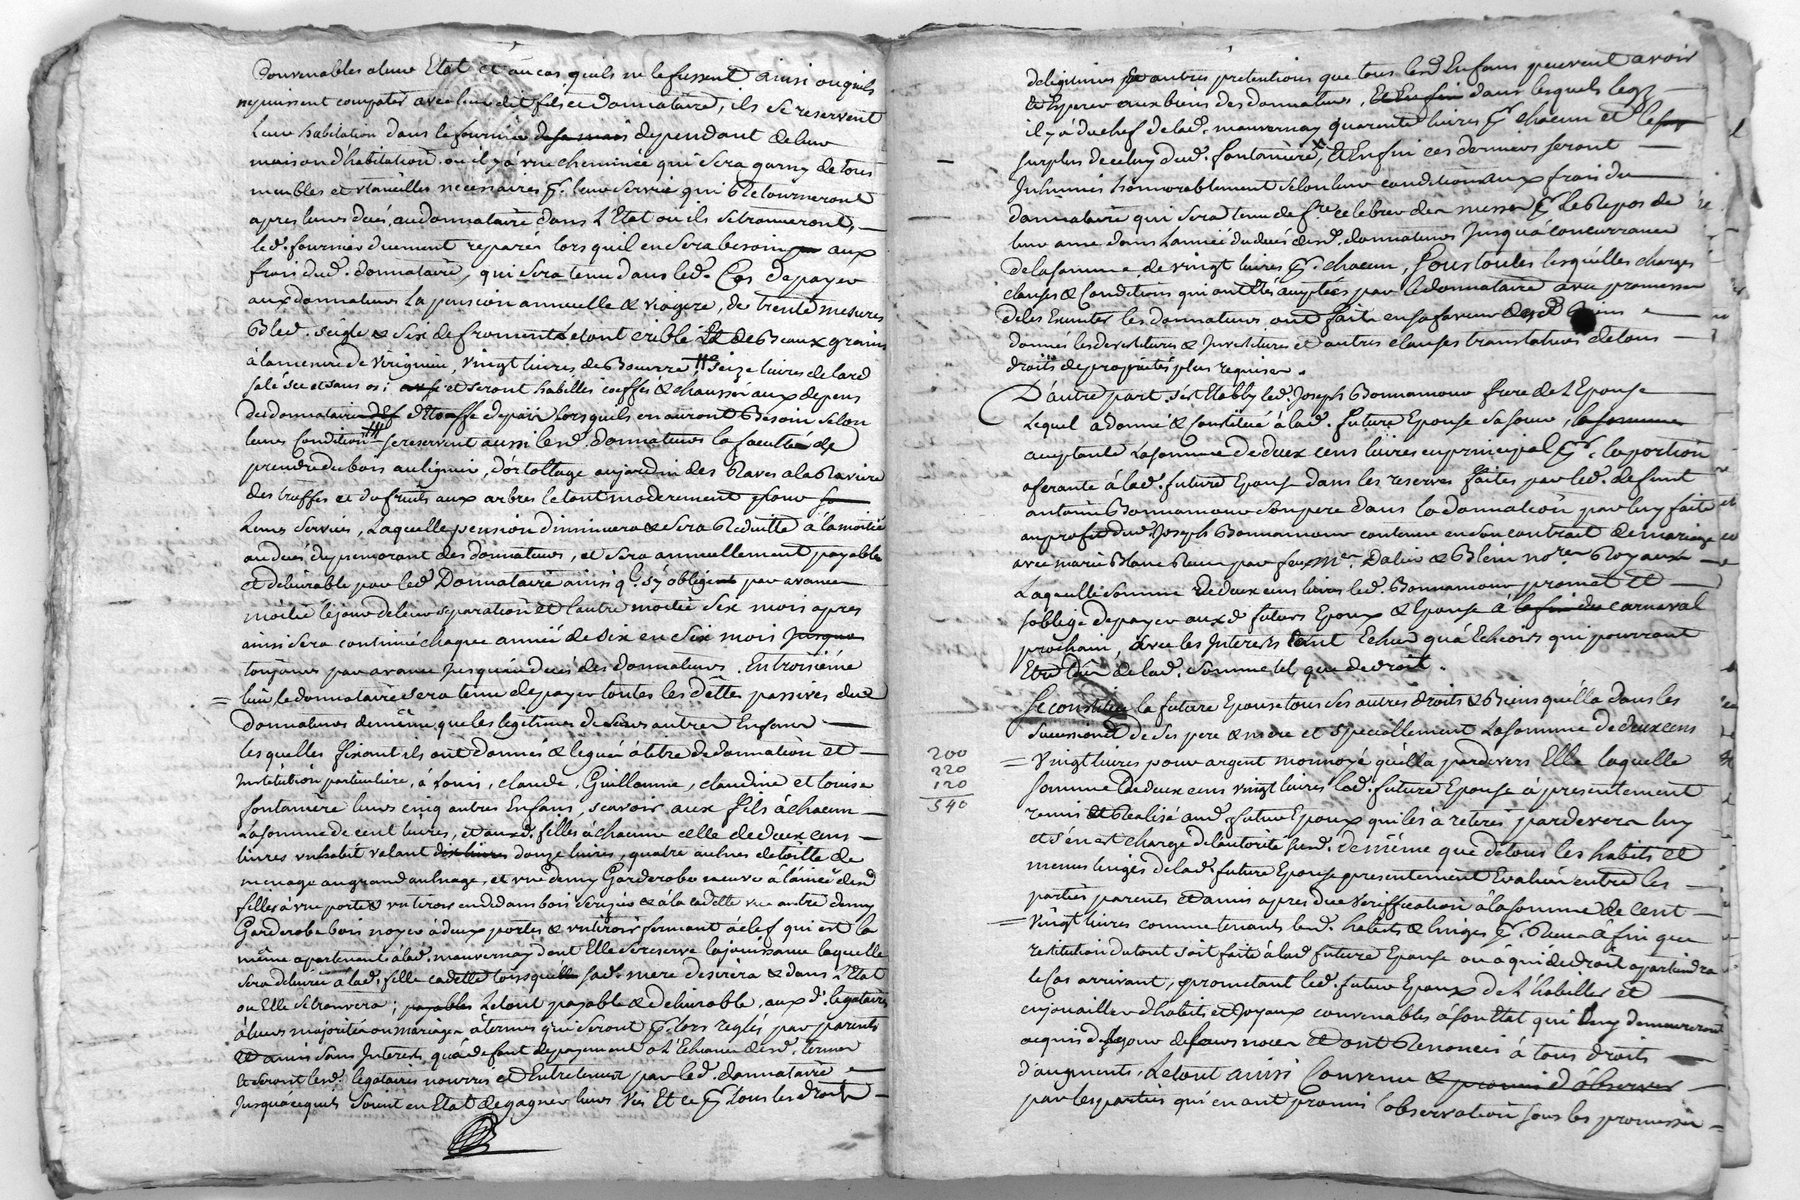 Convenables a leur Etat et au cas quils ne le fussent ainsi ou quils
ne puissent compatir avec leur dit fils et donnataire, ils se reservent
leur habitation dans le fournier de sa mais dependant de leur
maison d'habitation, ou il y a une cheminée qui sera garny de tous
meubles et utancilles necessaires pr. leur service qui Retourneront
apres leurs decés au donnataire dans l'Etat ou ils se trouveront,
led. fournier duement reparé lors quil en sera besoin aux
frais dud. donnataire, qui sera tenu dans led. Cas de payer
aux donnateurs la pension annuelle & viagere, de trente mesures
Bled. seigle & six de froment le tout criblé Et de Beaux grains
à la mesure de Virignieu, vingt livres de Beurre # seize livres de lard
salé sec et sans os; et seront habillés coeffés & chaussés aux depens
dud donnataire d'Etoffe de pais lorsquils en auront Besoin selon
leurs Condition # se reservent aussi lesd. donnateurs la faculté de
prendre du bois au lignier, d'ortollage au jardin des Raves a la Raviere
des truffes et du fruits aux arbres le tout moderement & pour
leurs services, Laquelle pension diminuera & sera Reduitte à la moitié
au decés du premourant des donnateurs, et sera annuellement payable
et delivrable par led Donnataire ainsi q. s'y oblige par avance
moitié le jour de leur separation et l'autre moitié six mois apres
ainsi sera continué chaque année de six en six mois jusqua
toujours par avance jusquau decés des donnateurs. En troisième
= lieu, le donnataire sera tenu de payer toutes les dettes passives des
donnateurs de mème que les legitimes de leurs autres Enfans
lesquelles fixant ils ont donnés & legués a titre de donnation et
Institution particuliere, a Louis, Claude, Guillaume, Claudine et Louise
fontaniere leurs cinq autres Enfans, sçavoir aux fils à chacun
La somme de cent livres, et auxd. filles à chacune celle de deux cens
livres un habit valant dix livres douze livres, quatre aulnes de toille de
menage au grand aulnage, et une demy Garderobe neuve à l'ainée desd
filles à une porte & un tiroir en dedans bois serizier & à la cadette une autre demy
Garderobe bois noyer à deux portes & un tiroir fermant à clef qui est la
même apartenant à lad. mauvernay dont Elle se reserve la jouissance laquelle
sera delivrée à lad. fille cadette lorsque sad. mere desirera & dans l'Etat
ou Elle se trouvera; payables Le tout payable & delivrable, aux d. legataires
à leurs majorités ou mariages à termes qui seront pr. lors reglés par parents
et amis sans Interests, qu'à defaut de payement a l'Echeance desd. termes
Et seront lesd. legataires nourris et Entretenus par led. donnataire
Jusquàcequils soient en Etat de gagner leurs vies Et ce pr tous les droits
de legitimes & autres pretentions que tous lesd Enfans peuvent avoir
& Esperer aux biens des donnateurs, Et Enfin dans lesquels legs
il y a du chef de lad. mauvernay quarente livres pr chacun et le
surplus de celuy dud. fontaniere, X Et Enfin ces derniers seront
Inhumés honnorablement selon leur condition aux frais du
donnataire qui sera tenu de fre celebrer des messes pr le Repos de
leur ame dans l'année du decés desd. donnateurs Jusqu'à concurrance
de la somme de vingt livres pr. chacun, sous toutes lesquelles charges
clauses & Conditions qui ont Etés acceptées par le donnataire avec promesse
de les Executer les donnateurs ont fait en sa faveur desd Biens
donnés les devestitures & Investitures et autres clauses translatives de tous
droits de proprietés plus requises.
D'autre part s'est Etably led. Joseph Bonnamour frere de l'Epouse
Lequel a donné & constitué à lad. future Epouse sa soeur, la somme
acceptante La somme de deux cens livres en principal pr. la portion
aferante à lad. future Epouse dans les reserves faites par led. defunt
antoine Bonnamour son pere dans la donnation par luy faite
au profit dud Joseph Bonnamour contenue en son contrat de mariage
avec marie Blanc Recu par feux Mes. Dalin & Blein nores. Royaux
Laquelle somme de deux cens livres led. Bonnamour promet et
s'oblige de payer auxd futurs Epoux & Epouse à la fin du carnaval
prochain, avec les Interests tant Echus qu'à Echeoirs qui pourront
Etre dûs de lad. somme tel que de droit.
Se constitue la future Epouse tous ses autres droits & Biens qu'ella dans les
successions de ses pere & mere et specialement La somme de deux cens
200
220
120
540
= vingt livres pour argent monnoyé qu'ella pardevers Elle laquelle
somme de deux cens vingt livres lad. future Epouse à presentement
remis et Realisé aud. futur Epoux qui les à retirés pardevers luy
et s'en est chargé de l'autorité susd. de mème que de tous les habits et
menus linges de lad. future Epouse presentement Evalués entre les
parties parents et amis apres due verification à la somme de cent
= vingt livres comme tenants lesd. habits & linges pr. Renes à fin que
restitution du tout soit faite à lad future Epouse ou à qui de droit apartiendra
le Cas arrivant, promettant led. futur Epoux de l'habiller et
enjouailler d'habits et Joyaux convenables à son Etat qui luy demeureront
acquis dez le jour de leurs noces et ont Renoncés à tous droits
d'augments. Le tout ainsi Convenu & promis d'observer
par les parties qui en ont promis l'observation sous les promesses